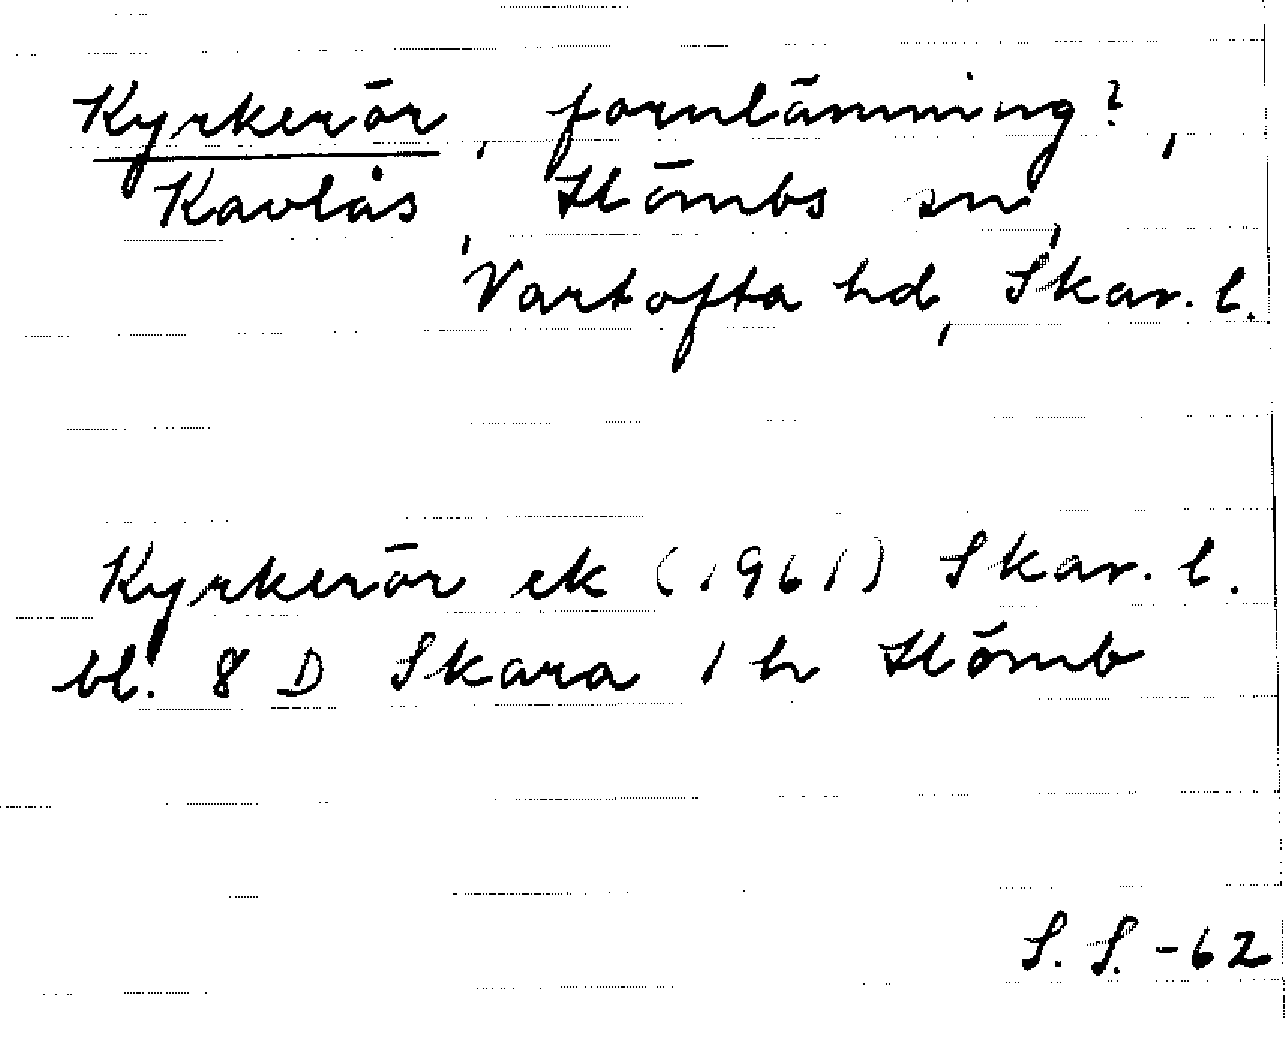 Kyrkerör, fornlämning?,
Kavlås, Slömbs sn,
Vartofta hd, Skar. l.
Kyrkerör ek (1961) Skar. l.
bl. 8 D Skara 1 h Slömb
S. S. -62